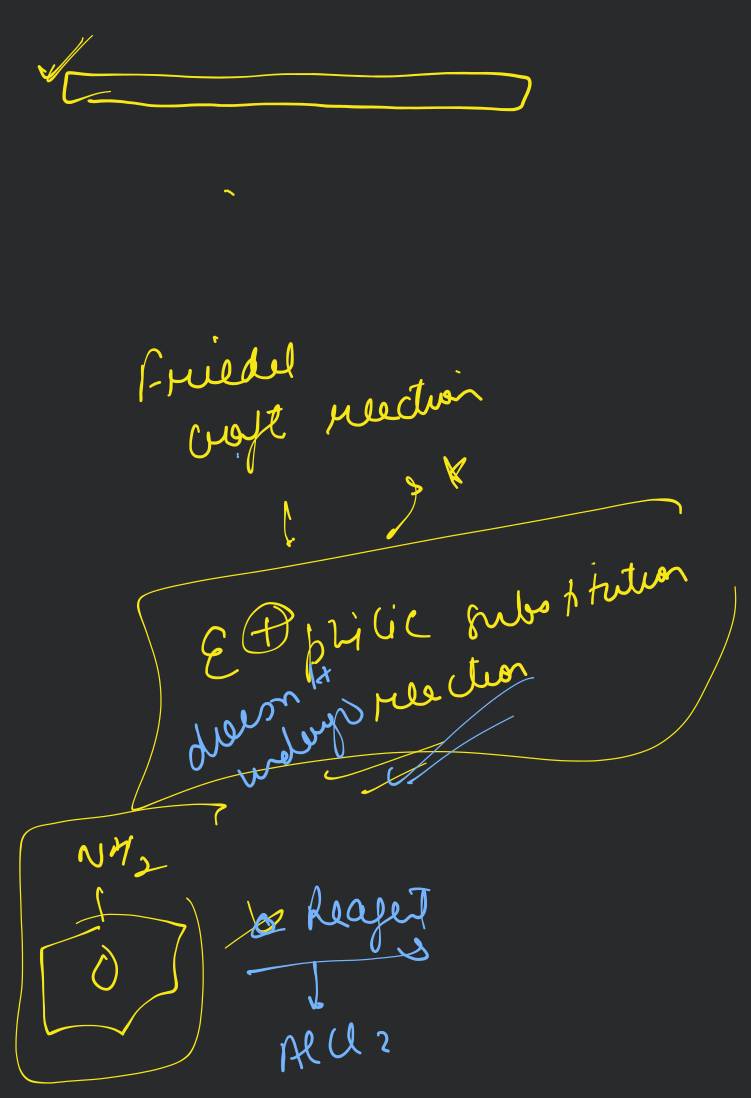 Friedel
craft reaction
E⊕philic substitution
reaction
doesn't
undergo
NH2
Reagent
AlCl2